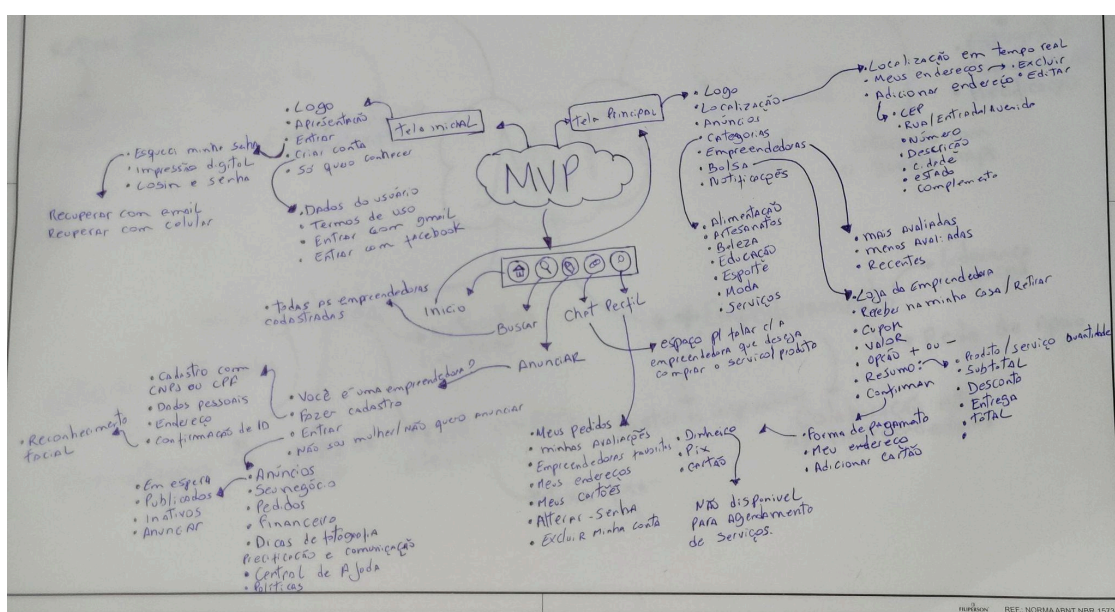 MVP
tela inicial
• Logo
• Apresentação
• Entrar
• Criar conta
• Só quero conhecer
• Esqueci minha senha
• Impressão digital
• Login e senha
Recuperar com email
Recuperar com celular
• Dados do usuário
• Termos de uso
• Entrar com gmail
• Entrar com facebook
tela Principal
• Logo
• Localização
• Anúncios
• Categorias
• Empreendedoras
• Bolsa
• Notificações
• Localização em tempo real
• Meus endereços → • Excluir
• Editar
• Adicionar endereço
• CEP
• Rua/Entrada/Avenida
• Número
• Descrição
• Cidade
• estado
• Complemento
• Alimentação
• Artesanatos
• Beleza
• Educação
• Esporte
• Moda
• Serviços
• mais Avaliadas
• menos Avaliadas
• Recentes
• Loja da Empreendedora
• Receber na minha casa/Retirar
• Cupom
• VALOR
• Opção + ou -
• Resumo:
• Confirmar
• Produto/serviço Quantidade
• Subtotal
• Desconto
• Entrega
• TOTAL
•
• Forma de pagamento
• Meu endereço
• Adicionar cartão
• Dinheiro
• Pix
• Cartão
Não disponivel
para Agendamento
de Serviços.
Início
Buscar
ANUNCIAR
Chat
Perfil
• todas as empreendedoras
cadastradas
• espaço p/ falar c/ a
empreendedora que deseja
comprar o servico/produto
• Você é uma empreendedora?
• Fazer cadastro
• Entrar
• Não sou mulher/não quero anunciar
• Cadastro com
CNPJ ou CPF
• Dados pessoais
• Endereço
• Confirmação de ID
• Reconhecimento
facial
• Anúncios
• Seu negócio
• Pedidos
• Financeiro
• Dicas de fotografia
Precificação e comunicação
• Central de Ajuda
• Políticas
• Em espera
• Publicados
• Inativos
• Anunciar
• Meus pedidos
• minhas Avaliações
• Empreendedoras favoritas
• Meus endereços
• Meus cartões
• Alterar - Senha
• Excluir minha conta
FILIPERSON
REF.: NORMA ABNT NBR